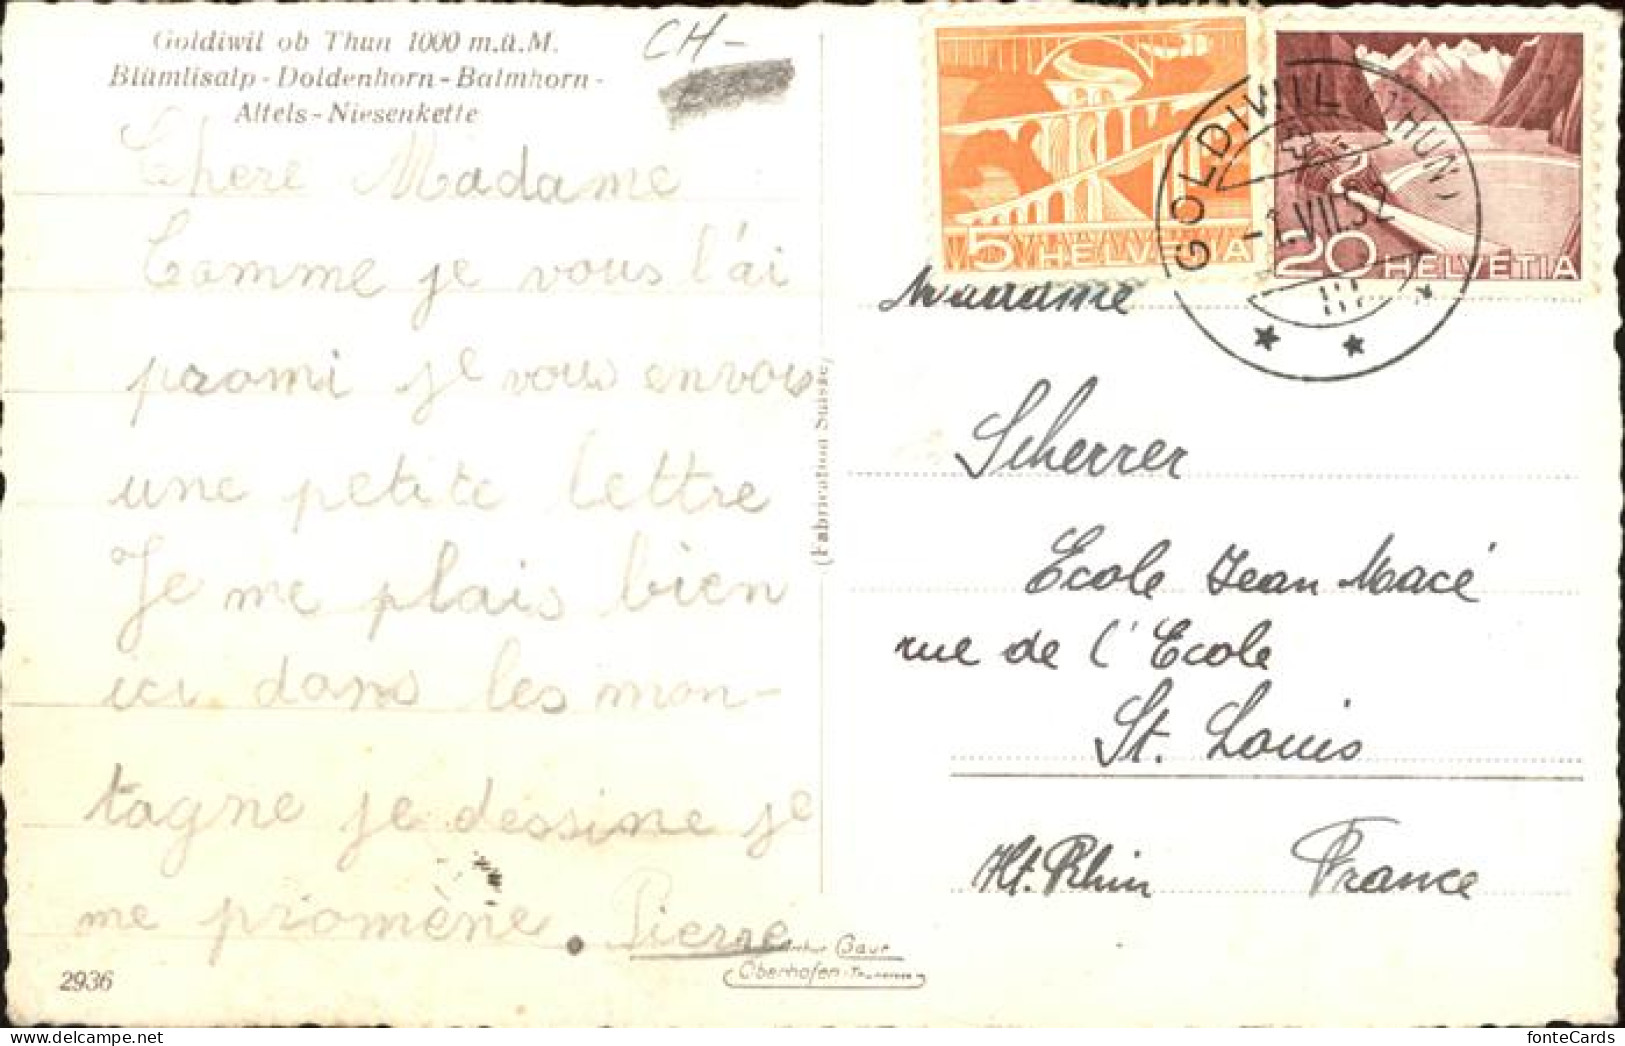 Goldiwil ob Thun 1000 m.ü.M.
Blümlisalp - Doldenhorn - Balmhorn -
Altels - Niesenkette
CH-
Chere Madame
Comme je vous l'ai
promi je vous envois
une petite lettre
Je me plais bien
ici dans les mon-
tagne je dessine je
me promène Pierre
2936
(Fabrication Suisse)
Arthur Baur
Oberhofen-Thunersee
5 HELVETIA
20 HELVETIA
GOLDIWIL (THUN)
-1.VII.52
Madame
Scherrer
Ecole Jean Macé
rue de l'Ecole
St. Louis
Ht. Rhin France
fonteCards
www.delcampe.net